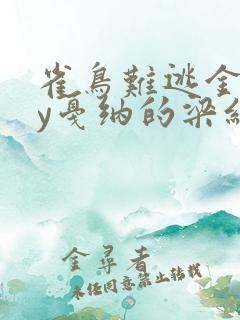 雀鳥難逃金
y戛纳的梁
金尋者
未任同意禁止转载